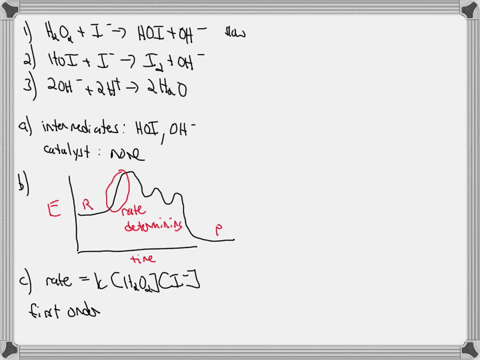 1) H₂O₂ + I⁻ → HOI + OH⁻ slow
2) HOI + I⁻ → I₂ + OH⁻
3) 2OH⁻ + 2H⁺ → 2H₂O
a) intermediates: HOI, OH⁻
catalyst: none
b)
E
R
rate
determining
P
time
c) rate = k[H₂O₂][I⁻]
first order